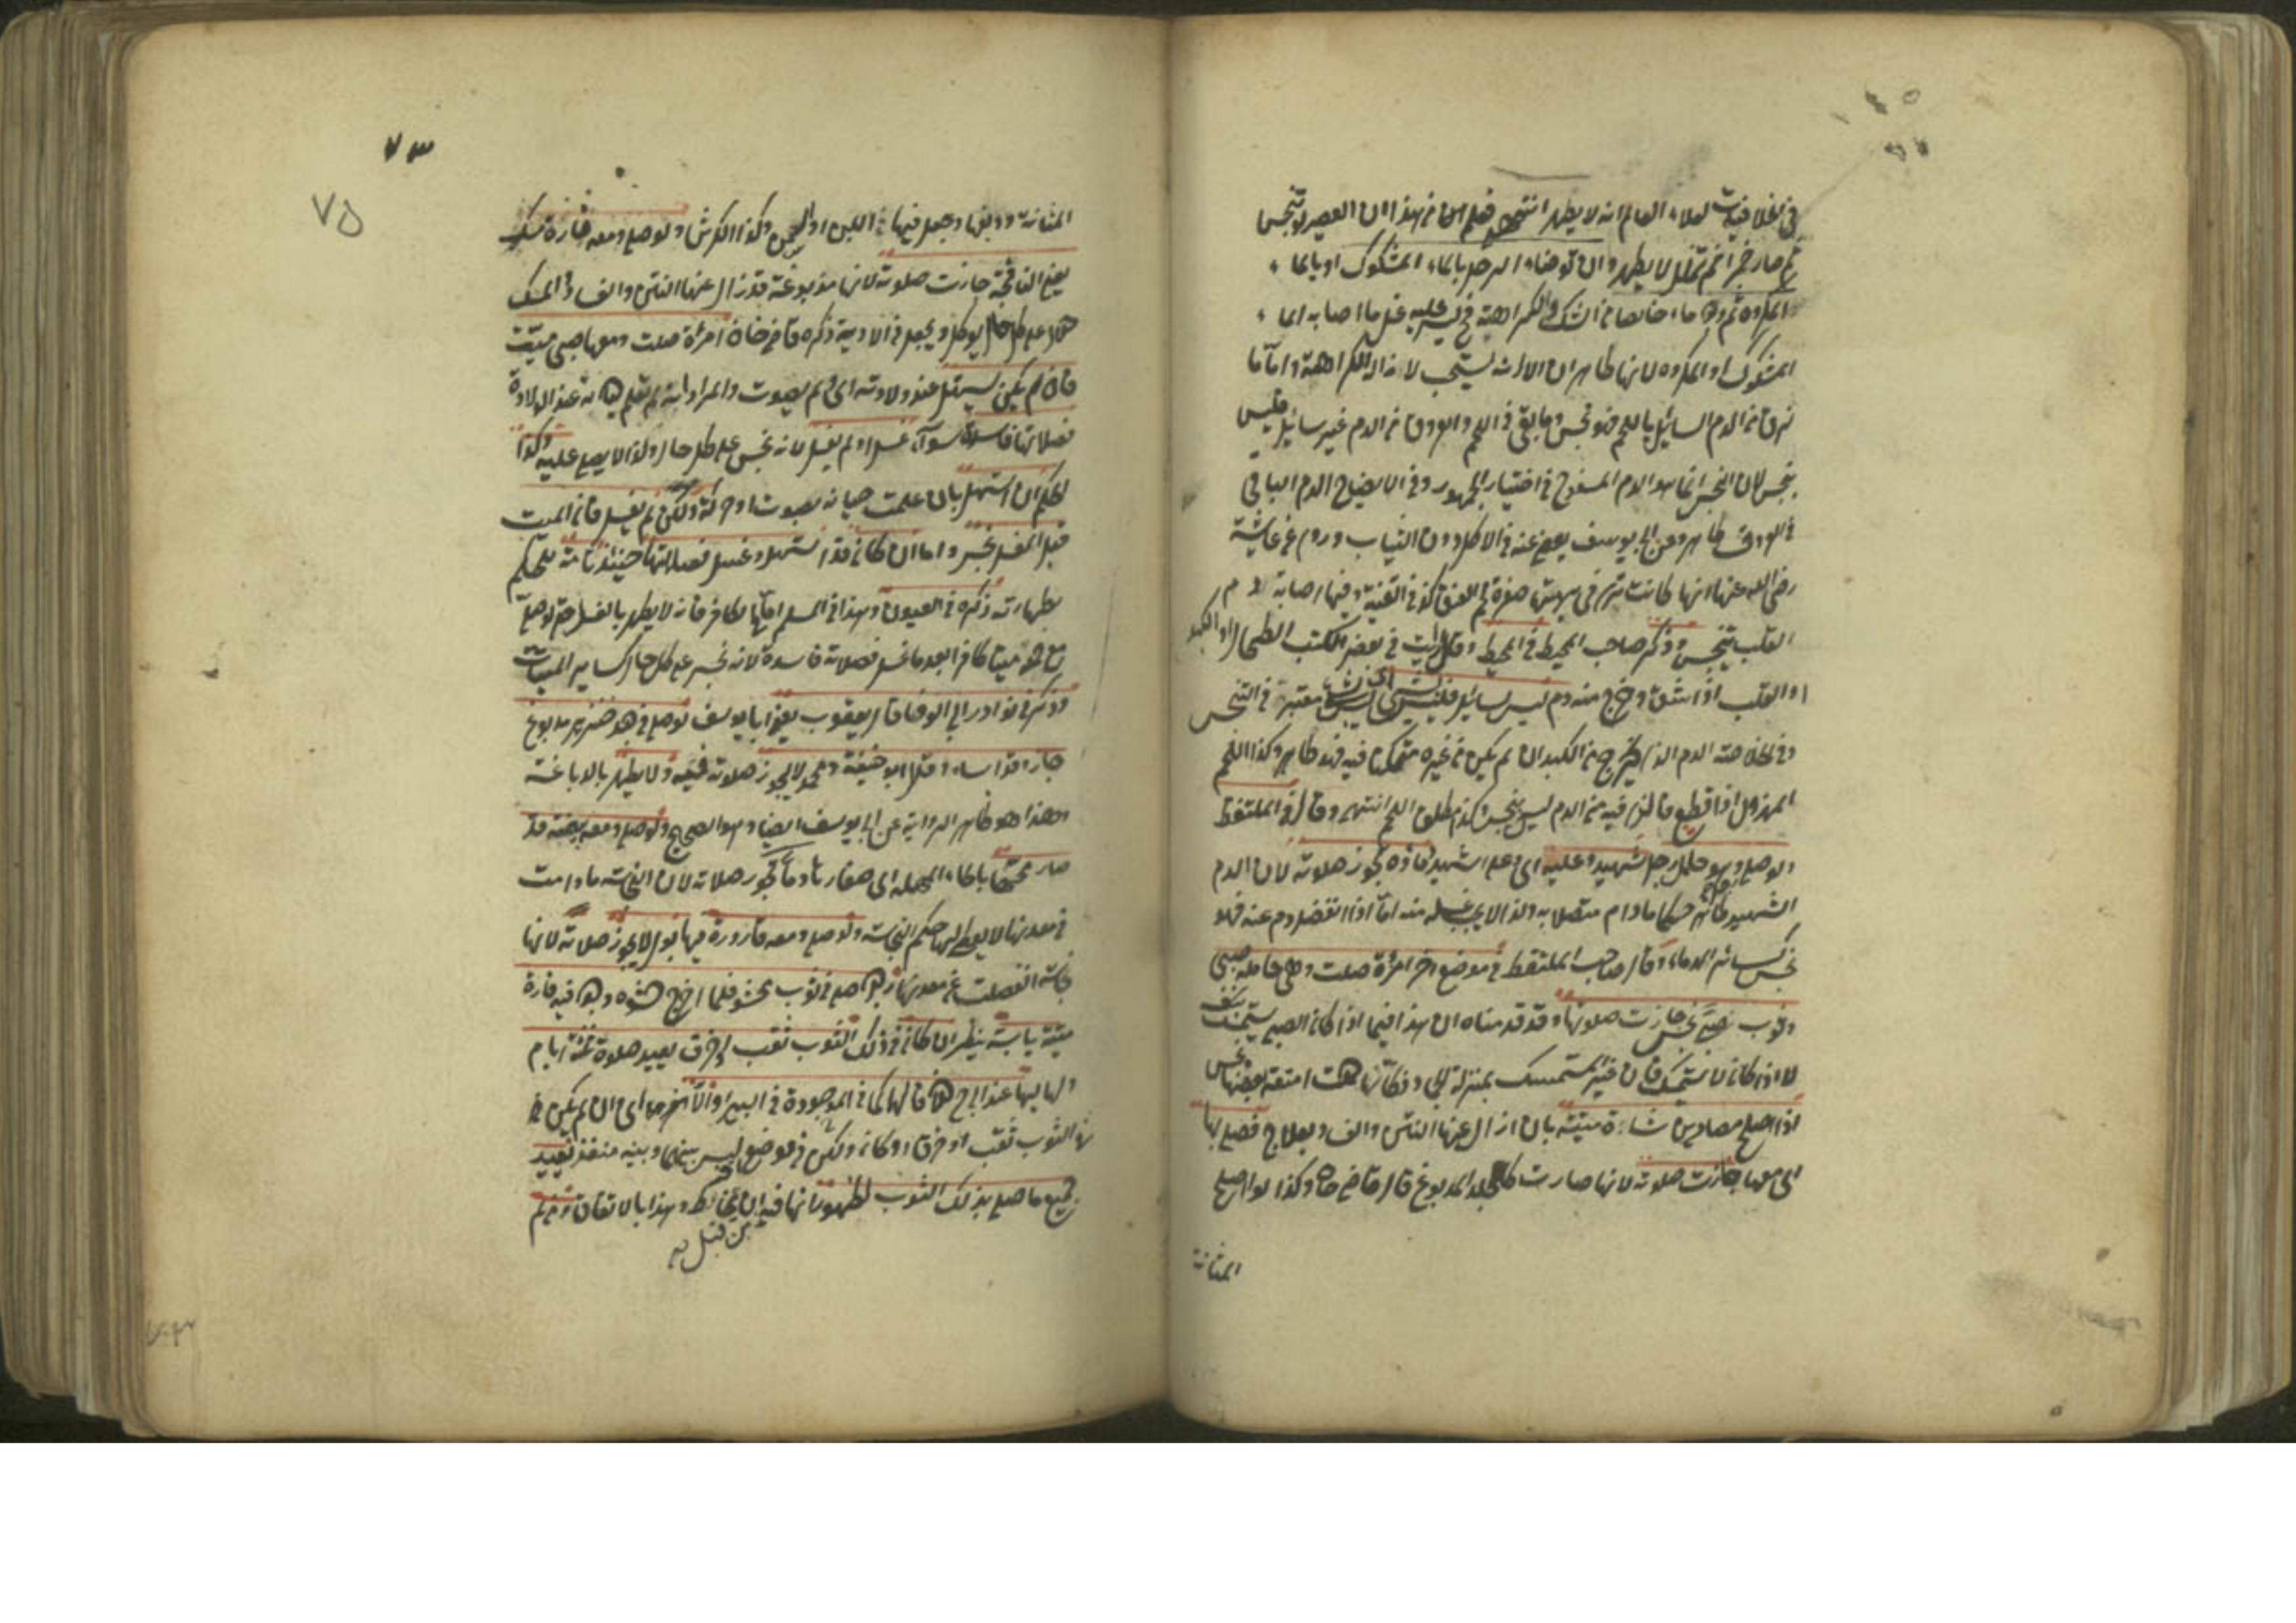 في الخلافيات لعلاء العالم انه لا يطهر انتهى فعلم من هذا ان العصير لو تنجس
ثم صار خمرا ثم تخلل لا يطهر وان توضاء الرجل بالماء المشكوك او بالماء
المكروه ثم وجد ماء خالصا من الشك والكراهة فليس عليه غسل ما اصابه الماء
المشكوك او المكروه لانها طاهران الا انه يستحب لازالة الكراهة واما ما
لزق من الدم السائل باللحم فهو نجس وما بقي في اللحم والعروق من الدم غير سائل فليس
بنجس لان النجس انما هو الدم المسفوح في اختيار الجمهور وفي الايضاح الدم الباقي
في العروق طاهر وعن ابي يوسف يعفى عنه في الاكل دون الثياب وروي عن عائشة
رضي الله عنها انها كانت ترى في برمتها صفرة لحم العنق كذا في القنية وفيها اصابه دم
القلب يتنجس وذكر صاحب المحيط في المحيط وقال رايت في بعض الكتب الطحال او الكبد
او القلب اذا شق وخرج منه دم ليس بسائل فليس بشيء اي ليس معتبر في التنجس
وفي الخلاصة الدم الذي يخرج من الكبد ان لم يكن من غيره متمكنا فيه فهو طاهر وكذا اللحم
المهزول اذا قطع فالذي فيه من الدم ليس بنجس وكذا مطلق اللحم انتهى وقال في الملتقط
ولو صلى وهو حامل رجل شهيد وعليه اي على الشهيد دماؤه تجوز صلوته لان الدم
الشهيد طاهر حكما مادام متصلا به ولذا لا يجب غسله منه اما اذا انفصل دم عنه فهو
نجس كسائر الدماء وقال صاحب الملتقط في موضع اخر امراة صلت وهي حاملة صبي
وثوب الصبي نجس جازت صلوتها وقد قدمناه ان هذا فيما اذا كان الصبي يستمسك بنفسه
لا اذا كان لا يستمسك فان غير المستمسك بمنزلة
اذا اصلح مصارين شاة ميتة بان ازال عنها النتن والفساد بعلاج فصلى بها
اي معها جازت صلوته لانها صارت كالجلد المدبوغ قال قاضي خان وكذا لو اصلح
المثانة
٧٣
٧٥
المثانة ودبغها وجعل فيها اللبن او السمن وكذا الكرش ولو صلى ومعه فارة مسك
يعني النافجة جازت صلوته لانها مدبوغة قد زال عنها النتن والفساد والمسك
حلال على كل حال يؤكل ويجعل في الادوية ذكره قاضي خان امراة صلت ومعها صبي ميت
فان لم يكن يستهل عند ولادته اي لم يصوت والمراد انه لم تعلم حياته عند الولادة
فصلاتها فاسدة سواء غسل او لم يغسل لانه نجس على كل حال ولذا لا يصلى عليه وكذا
الحكم ان استهل بان علمت حياته بصوت او حركة ولكن لم يغسل فان الميت
قبل الغسل نجس واما ان كان قد استهل وغسل فصلاتها حينئذ تامة للحكم
بطهارته ذكره في العيون وهذا في المسلم اما الكافر فانه لا يطهر بالغسل حتى لو صلى
مع ميتا كافرا بعد ما غسل فصلاته فاسدة لانه نجس على كل حال كسائر الميتات
وذكر في نوادر ابي الوفا قال يعقوب يعني ابا يوسف لو صلى في جلد خنزير مدبوغ
جاز وقد اساء وقال ابو حنيفة ومحمد لا يجوز صلوته فيه ولا يطهر بالدباغة
وهذا هو ظاهر الرواية عن ابي يوسف ايضا وهو الصحيح ولو صلى ومعه بيضة قد
صار محها بالحاء المهملة اي صفارها دما تجوز صلاته لان النجاسة مادامت
في معدنها لا يعطى لها حكم النجاسة ولو صلى ومعه قارورة فيها بول لا يجوز صلاته لانها
نجاسة انفصلت عن معدنها رجل صلى في ثوب محشو فلما اخرج حشوه وجد فيه فارة
ميتة يابسة ينظر ان كان في ذلك الثوب ثقب او خرق يعيد صلوة ثلثة ايام
ولياليها عند ابي ح كما في الموجودة في البير والا اي ان لم يكن في
هذا الثوب ثقب او خرق او كان ولكن في موضع ليس بينها وبينه منفذ يعيد
جميع ما صلى بذلك الثوب لظهور انها فيه وهذا بالاتفاق ومن لم
من قبل